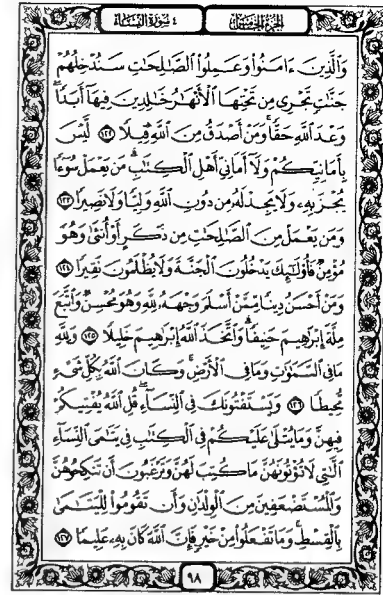 الجزء الخامس
٤ سورة النساء
وَالَّذِينَ ءَامَنُوا۟ وَعَمِلُوا۟ الصَّـٰلِحَـٰتِ سَنُدْخِلُهُمْ
جَنَّـٰتٍ تَجْرِى مِن تَحْتِهَا الْأَنْهَـٰرُ خَـٰلِدِينَ فِيهَآ أَبَدًا
وَعْدَ اللَّهِ حَقًّا وَمَنْ أَصْدَقُ مِنَ اللَّهِ قِيلًا ١٢٢ لَّيْسَ
بِأَمَانِيِّكُمْ وَلَآ أَمَانِىِّ أَهْلِ الْكِتَـٰبِ مَن يَعْمَلْ سُوٓءًا
يُجْزَ بِهِۦ وَلَا يَجِدْ لَهُۥ مِن دُونِ اللَّهِ وَلِيًّا وَلَا نَصِيرًا ١٢٣
وَمَن يَعْمَلْ مِنَ الصَّـٰلِحَـٰتِ مِن ذَكَرٍ أَوْ أُنثَىٰ وَهُوَ
مُؤْمِنٌ فَأُو۟لَـٰٓئِكَ يَدْخُلُونَ الْجَنَّةَ وَلَا يُظْلَمُونَ نَقِيرًا ١٢٤
وَمَنْ أَحْسَنُ دِينًا مِّمَّنْ أَسْلَمَ وَجْهَهُۥ لِلَّهِ وَهُوَ مُحْسِنٌ وَاتَّبَعَ
مِلَّةَ إِبْرَٰهِيمَ حَنِيفًا وَاتَّخَذَ اللَّهُ إِبْرَٰهِيمَ خَلِيلًا ١٢٥ وَلِلَّهِ
مَا فِى السَّمَـٰوَٰتِ وَمَا فِى الْأَرْضِ وَكَانَ اللَّهُ بِكُلِّ شَىْءٍ
مُّحِيطًا ١٢٦ وَيَسْتَفْتُونَكَ فِى النِّسَآءِ قُلِ اللَّهُ يُفْتِيكُمْ
فِيهِنَّ وَمَا يُتْلَىٰ عَلَيْكُمْ فِى الْكِتَـٰبِ فِى يَتَـٰمَى النِّسَآءِ
الَّـٰتِى لَا تُؤْتُونَهُنَّ مَا كُتِبَ لَهُنَّ وَتَرْغَبُونَ أَن تَنكِحُوهُنَّ
وَالْمُسْتَضْعَفِينَ مِنَ الْوِلْدَٰنِ وَأَن تَقُومُوا۟ لِلْيَتَـٰمَىٰ
بِالْقِسْطِ وَمَا تَفْعَلُوا۟ مِنْ خَيْرٍ فَإِنَّ اللَّهَ كَانَ بِهِۦ عَلِيمًا ١٢٧
٩٨